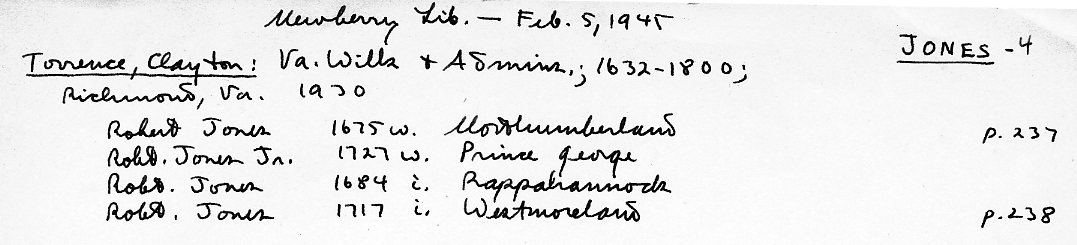 Newberry Lib. — Feb. 5, 1945
JONES - 4
Torrence, Clayton: Va. Wills & Admins.; 1632-1800;
Richmond, Va. 1930
Robert Jones 1675 w. Northumberland p. 237
Robt. Jones Jr. 1727 w. Prince George
Robt. Jones 1684 i. Rappahannock
Robt. Jones 1717 i. Westmoreland p. 238